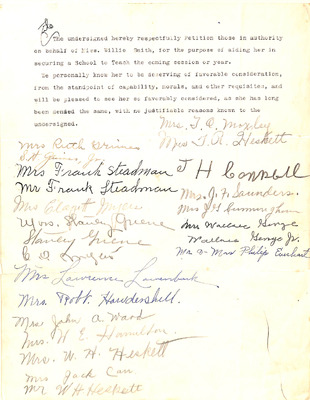 The undersigned hereby respectfully Petition those in authority
on behalf of Miss. Willie Smith, for the purpose of aiding her in
securing a School to Teach the coming session or year.
We personally know her to be deserving of favorable consideration,
from the standpoint of capability, morals, and other requisites, and
will be pleased to see her so favorably considered, as she has long
been denied the same, with no justifiable reasons known to the
undersigned.
Mrs. T. A. Moxley
Mrs T. R. Heskett
Mrs Ruth Grimes
Mrs Frank Steadman
Mr Frank Steadman
J H Campbell
Mrs. J. F. Saunders.
Mrs J H Cunningham
Mrs. Stanley Greene
Stanley Greene
Mrs Wallace George
Wallace George Jr.
Mr. & Mrs Philip Earhart
Mrs Lawrence
Mrs. Robt. Howdershell.
Mrs John A Ward
Mrs. W. E. Hamilton.
Mrs. W. H. Heskett
Mrs Jack Carr
Mr W H Heskett